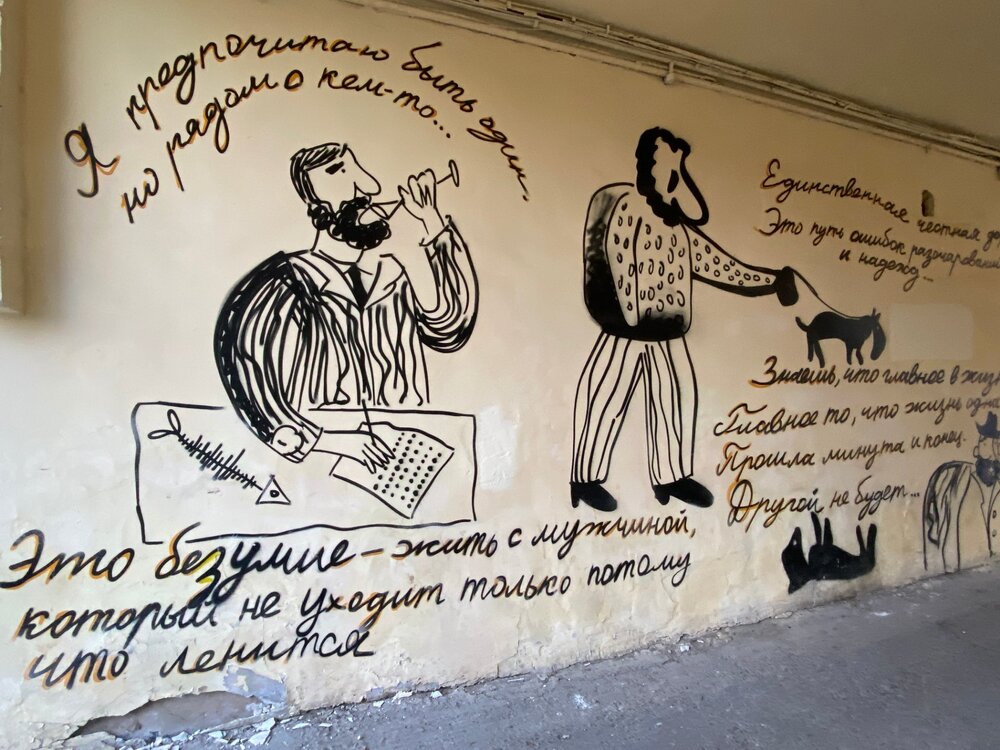 Я предпочитаю быть один,
но рядом с кем-то...
Единственная честная
Это путь ошибок разочарований
и надежд...
Знаешь, что главное в
Главное то, что жизнь одна
Прошла минута и конец.
Другой не будет...
Это безумие - жить с мужчиной,
который не уходит только потому
что ленится